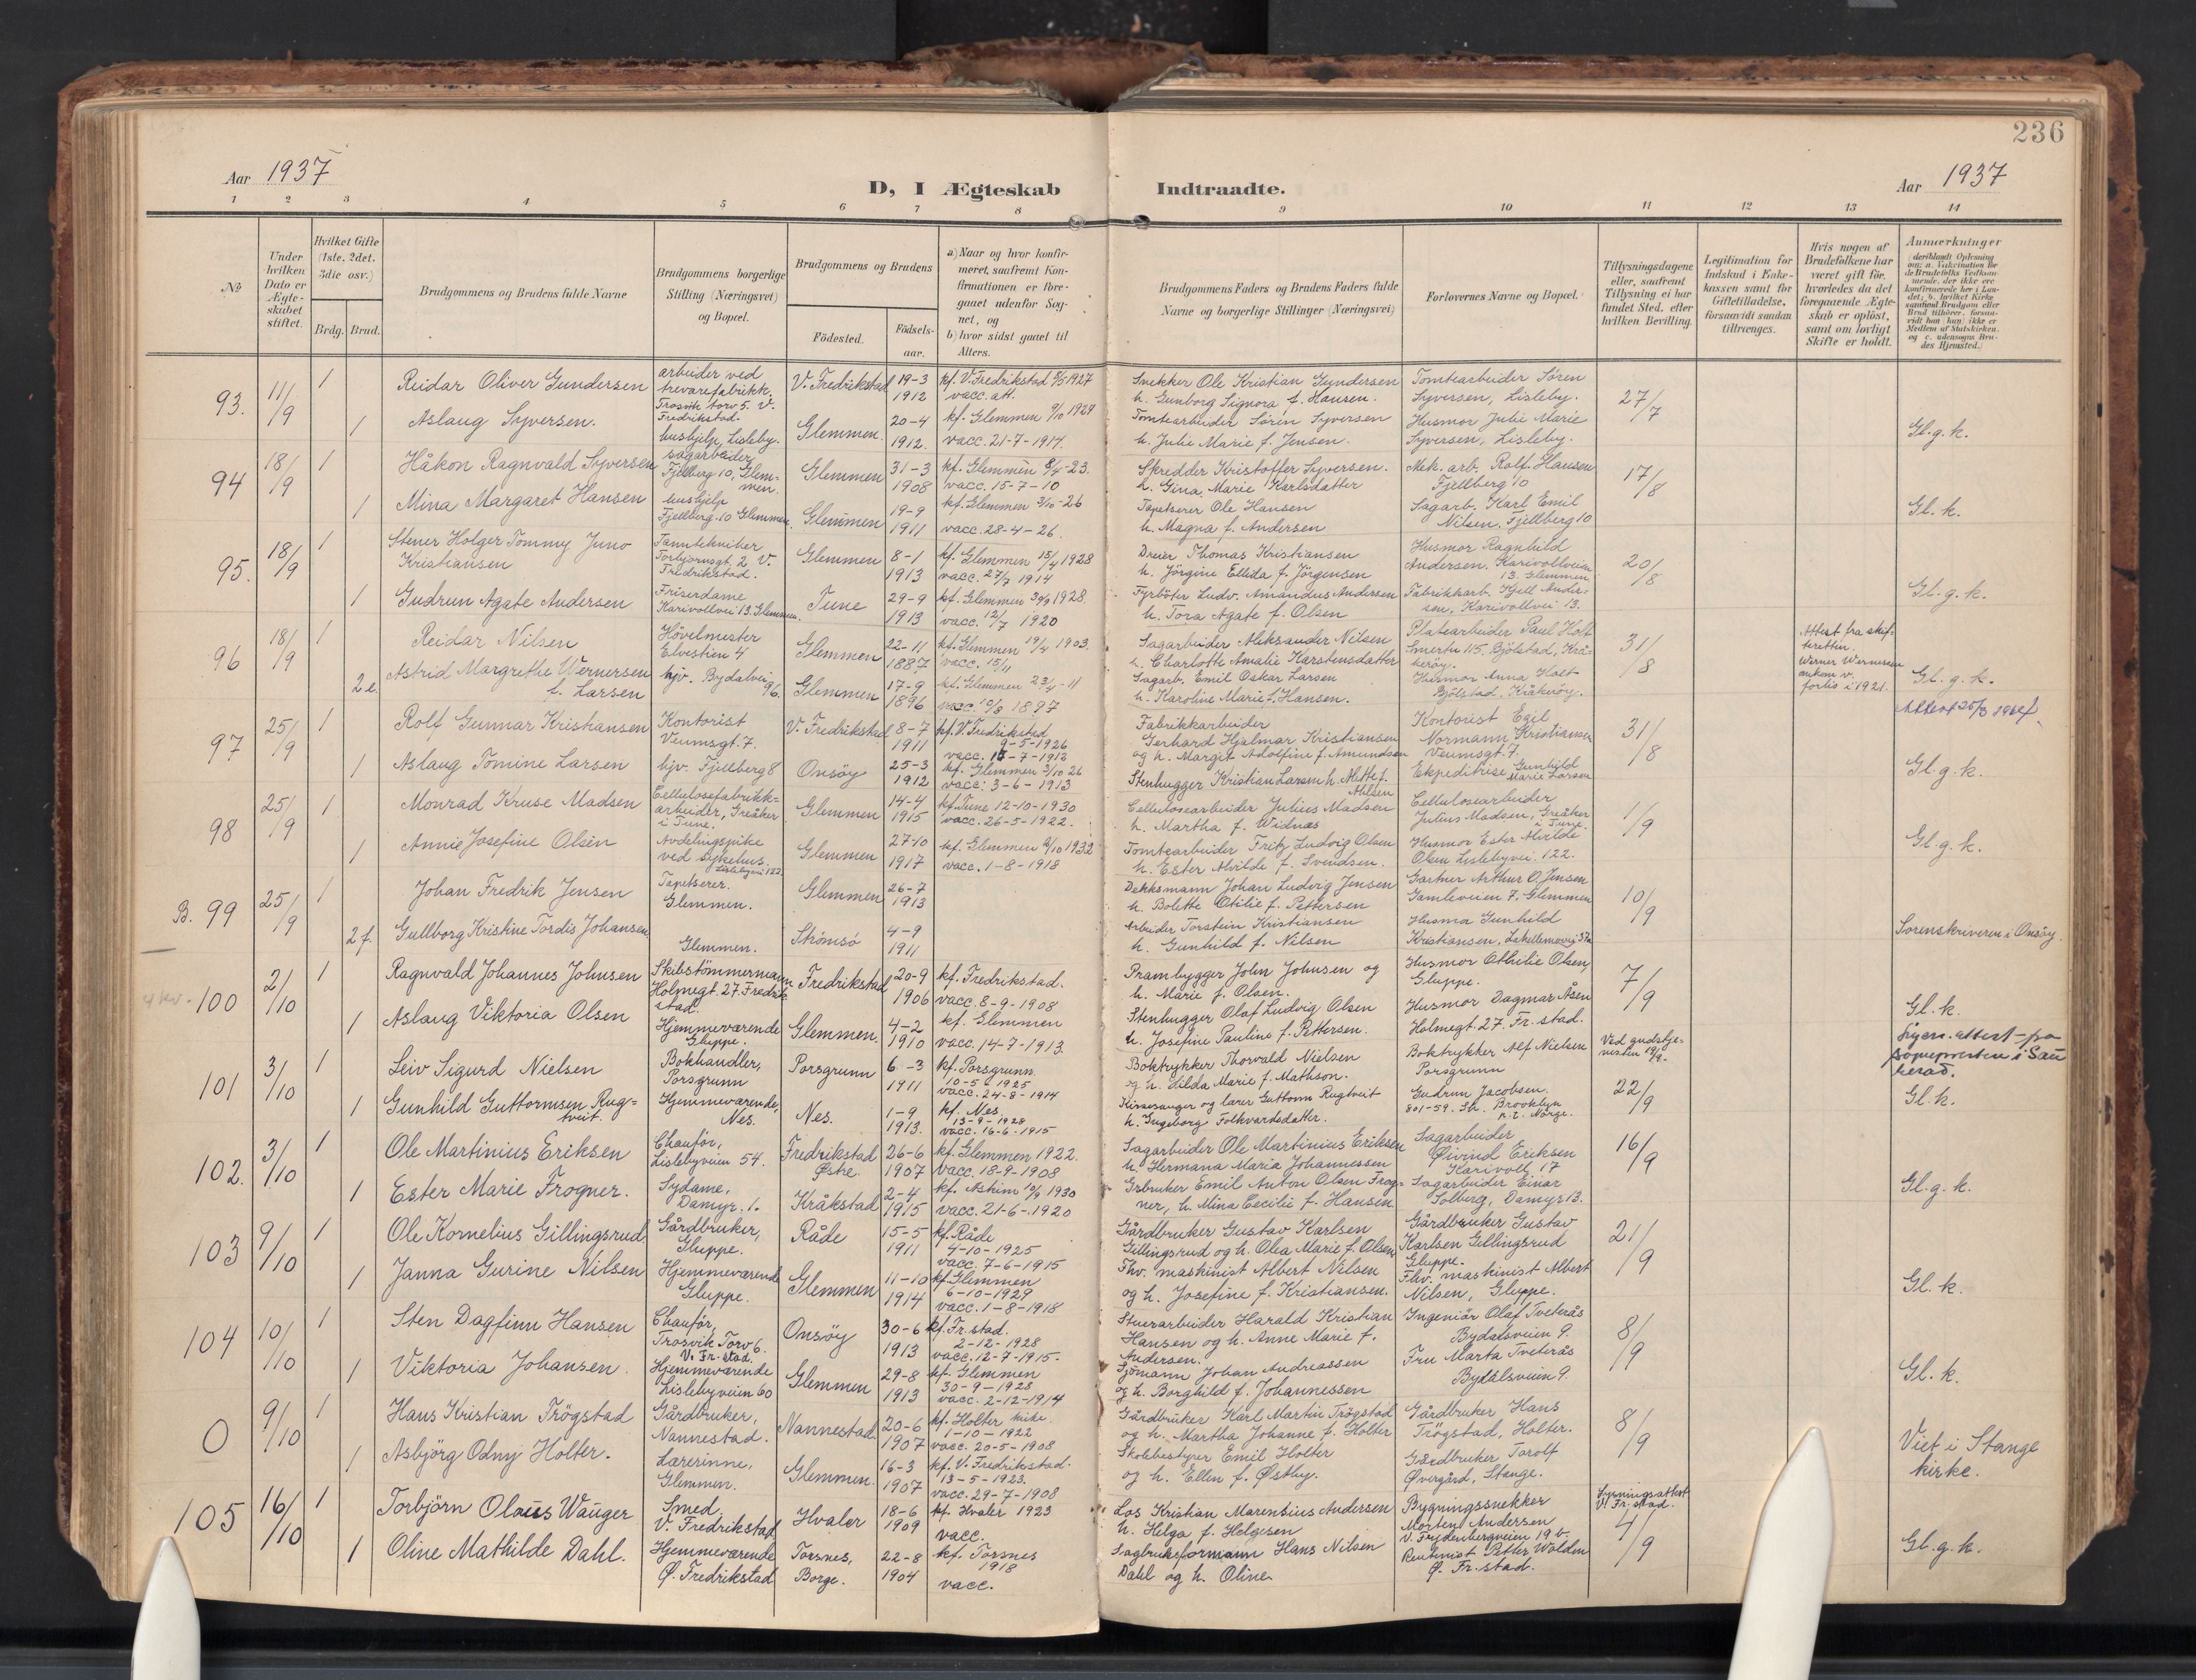 236
Aar 1937
D, I Ægteskab Indtraadte.
Aar 1937
1 2 3 4 5 6 7 8 9 10 11 12 13 14
No
Under hvilken Dato er Ægteskabet stiftet.
Hvilket Gifte (1ste, 2det, 3die osv.)
Brdg. Brud.
Brudgommens og Brudens fulde Navne
Brudgommens borgerlige Stilling (Næringsvei) og Bopæl.
Brudgommens og Brudens
Födested.
Födselsaar.
a) Naar og hvor konfirmeret, saafremt Konfirmationen er foregaaet udenfor Sognet, og
b) hvor sidst gaaet til Alters.
Brudgommens Faders og Brudens Faders fulde Navne og borgerlige Stillinger (Næringsvei)
Forlovernes Navne og Bopæl.
Tillysningsdagene eller, saafremt Tillysning ei har fundet Sted, efter hvilken Bevilling.
Legitimation for Indskud i Enkekassen samt for Giftetilladelse, forsaavidt saadan tiltrænges.
Hvis nogen af Brudefolkene har været gift för, hvorledes da det foregaaende Ægteskab er oplöst, samt om lovligt Skifte er holdt.
Anmerkninger
93. 11/9 1 Reidar Oliver Gundersen arbeider ved trevarefabrikk. Trosvik torv 5. V. Fredrikstad V. Fredrikstad 19-3 1912 kf. V. Fredrikstad 8/5 1927 vacc. att. Snekker Ole Kristian Gundersen h. Gunborg Signora f. Hansen. Tomtearbeider Søren Syversen, Lisleby. 27/7
1 Aslaug Syversen. hushjelp, Lisleby. Glemmen. 20-4 1912. kf. Glemmen 9/10 1927 vacc. 21-7-1914. Tomtearbeider Søren Syversen h. Julie Marie f. Jensen. Husmor Julie Marie Syversen, Lisleby. Gl. g. k.
94 18/9 1 Håkon Ragnvald Syversen sagarbeider Fjellberg 10, Glemmen. Glemmen 31-3 1908 kf. Glemmen 8/4-23. vacc. 15-7-10 Skredder Kristoffer Syversen. h. Gina Marie Karlsdatter Mek. arb. Rolf Hansen Fjellberg 10 17/8
1 Mina Margaret Hansen hushjelp Fjellberg 10 Glemmen. Glemmen 19-9 1911 kf. Glemmen 3/10-26 vacc. 28-4-26. Tapetserer Ole Hansen h. Magna f. Andersen Sagarb. Karl Emil Nilsen, Fjellberg 10 Gl. k.
95. 18/9 1 Stener Holger Tommy Juno Kristiansen Tanntekniker Torbjørnsgt. 2 V. Fredrikstad. Glemmen 8-1 1913 kf. Glemmen 15/4 1928 vacc. 27/7 1914 Dreier Thomas Kristiansen h. Jörgine Ellida f. Jörgensen Husmor Ragnhild Andersen. Karivollveien 13. Glemmen 20/8
1 Gudrun Agate Andersen Friserdame Karivollvei 13. Glemmen. Tune 29-9 1913 kf. Glemmen 30/9 1928. vacc. 12/7 1920 Fyrböter Ludv. Amandus Andersen h. Tora Agate f. Olsen Fabrikkarb. Kjell Andersen, Karivollvei 13. Gl. g. k.
96 18/9 1 Reidar Nilsen Hövelmester Elvestien 4 Glemmen 22-11 1887 kf. Glemmen 19/4 1903. vacc. 15/11 Sagarbeider Aleksander Nilsen h. Charlotte Amalie Karstensdatter Platearbeider Paul Holt Smertu 115. Bjölstad, Kråkeröy. 31/8
2 e. Astrid Margrethe Wernersen f. Larsen hjv. Bydalvei 96. Glemmen 17-9 1896 kf. Glemmen 23/4-11 vacc. 10/8 1897 Sagarb. Emil Oskar Larsen h. Karoline Marie f. Hansen. Husmor Anna Holt Bjölstad, Kråkeröy. Attest fra skifteretten. Werner Wernersen omkom v. forlis i 1921. Gl. g. k.
97 25/9 1 Rolf Gunnar Kristiansen Kontorist Veumsgt. 7. V. Fredrikstad 8-7 1911 kf. V. Fredrikstad 9-5-1926 vacc. 15-7-1912 Fabrikkarbeider Gerhard Hjalmar Kristiansen og h. Margit Adolfine f. Amundsen Kontorist Egil Normann Kristiansen Veumsgt. 7. 31/8
1 Aslaug Tomine Larsen hjv. Fjellberg 8 Onsöy 25-3 1912 kf. Glemmen 3/10 26 vacc. 3-6-1913 Stenhugger Kristian Larsen h. Alette f. Ahlsen Ekspeditrise Gunhild Marie Larsen Gl. g. k.
98 25/9 1 Monrad Kruse Madsen Cellulosefabrikkarbeider, Greåker i Tune. Glemmen 14-4 1915 kf. Tune 12-10-1930 vacc. 26-5-1922. Cellulosearbeider Julius Madsen h. Martha f. Widnæs Cellulosearbeider Julius Madsen, Greåker i Tune. 1/9
1 Annie Josefine Olsen Avdelingspike ved sykehus. Lislebyvei 122 Glemmen 27-10 1917 kf. Glemmen 2/10 1932 vacc. 1-8-1918 Tomtearbeider Fritz Ludvig Olsen h. Ester Alvilde f. Svendsen. Husmor Ester Alvilde Olsen Lislebyvei. 122. Gl. g. k.
B. 99 25/9 1 Johan Fredrik Jensen Tapetserer. Glemmen. Glemmen 26-7 1913 Dekksmann Johan Ludvig Jensen h. Bolette Otilie f. Pettersen Gartner Arthur O. Jensen Gamleveien 7. Glemmen 10/9
2 f. Gullborg Kristine Tordis Johansen. Glemmen. Strömsö 4-9 1911 Arbeider Torstein Kristiansen h. Gunhild f. Nilsen Husmor Gunhild Kristiansen, Sorenskriveren i Onsöy.
100 2/10 1 Ragnvald Johannes Johnsen Skibstömmermann Holmegt. 27. Fredrikstad. Fredrikstad 20-9 1906 kf. Fredrikstad. vacc. 8-9-1908 Prambygger John Johnsen og h. Marie f. Olsen. Husmor Othilie Olsen, Gluppe. 7/9
1 Aslaug Viktoria Olsen Hjemmeværende Gluppe. Glemmen. 4-2 1910 kf. Glemmen vacc. 14-7-1913. Stenhugger Olaf Ludvig Olsen h. Josefine Pauline f. Pettersen. Husmor Dagmar Åsen Holmegt. 27. Fr. stad. Gl. k.
101 3/10 1 Leiv Sigurd Nielsen Bokhandler, Porsgrunn Porsgrunn 6-3 1911 kf. Porsgrunn. 10-5-1925 vacc. 24-8-1914 Boktrykker Thorvald Nielsen og h. Hilda Marie f. Mathson. Boktrykker Alf Nielsen Porsgrunn Ved gudstjenesten 19/9. Lysn. attest fra sognepresten i Sauherad.
1 Gunhild Guttormsen Rugtveit. Hjemmeværende, Nes. Nes. 1-9 1913. kf. Nes. 13-9-1928 vacc. 16-6-1915 Kirkesanger og lærer Guttorm Rugtveit h. Ingeborg Folkvardsdatter. Gudrun Jacobsen. 801-59. St. Brooklyn p. t. Norge. 22/9 Gl. k.
102. 3/10 1 Ole Martinius Eriksen Chauför, Lislebyveien 54. Fredrikstad Østre. 26-6 1907 kf. Glemmen 1922. vacc. 18-9-1908 Sagarbeider Ole Martinius Eriksen h. Hermana Maria Johannessen Sagarbeider Øivind Eriksen Karivoll 17 16/9
1 Ester Marie Frogner. Sydame, Damyr. 1. Kråkstad 2-4 1915 kf. Askim 10/8 1930 vacc. 21-6-1920 Gårbruker Emil Anton Olsen Frogner, h. Mina Cecilie f. Hansen Sagarbeider Einar Solberg, Damyr 13. Gl. g. k.
103 9/10 1 Ole Kornelius Gillingsrud Gårdbruker, Gluppe. Råde 15-5 1911 kf. Råde 4-10-1925 vacc. 7-6-1915 Gårdbruker Gustav Karlsen Gillingsrud og h. Olea Marie f. Olsen Gårdbruker Gustav Karlsen Gillingsrud Gluppe. 21/9
1 Janna Gurine Nilsen Hjemmeværende Gluppe. Glemmen 11-10 1914 kf. Glemmen 6-10-1929 vacc. 1-8-1918 Fhv. maskinist Albert Nilsen og h. Josefine f. Kristiansen. Fhv. maskinist Albert Nilsen, Gluppe. Gl. k.
104 10/10 1 Sten Dagfinn Hansen Chauför, Trosvik Torv 6. V. Fr. stad. Onsöy 30-6 1913 kf. Fr. stad. 2-12-1928 vacc. 12-7-1915. Stuerarbeider Harald Kristian Hansen og h. Anne Marie f. Andersen. Ingeniör Olaf Tveterås Bydalsveien 9. 8/9
1 Viktoria Johansen. Hjemmeværende Lislebyveien 60 Glemmen 29-8 1913 kf. Glemmen 30-9-1928 vacc. 2-12-1914 Sjömann Johan Andreassen og h. Borghild f. Johannessen Fru Marta Tveterås Bydalsveien 9. Gl. k.
0 9/10 1 Hans Kristian Trögstad Gårdbruker, Nannestad. Nannestad 20-6 1907 kf. Holter kirke. 1-10-1922 vacc. 20-5-1908 Gårdbruker Karl Martin Trögstad og h. Martha Johanne f. Holter Gårdbruker Hans Trögstad, Holter. 8/9
1 Asbjörg Odny Holter. Lærerinne, Glemmen. Glemmen. 16-3 1907 kf. V. Fredrikstad. 13-5-1923. vacc. 29-7-1908 Skolebestyrer Emil Holter og h. Ellen f. Østby. Gårdbruker Torolf Øvergård, Stange. Viet i Stange kirke.
105 16/10 1 Torbjörn Olaus Wauger Smed V. Fredrikstad Hvaler 18-6 1909 kf. Hvaler 1923 vacc. Los Kristian Marensius Andersen h. Helga f. Helgesen Bygningssnekker Morten Andersen V. Frydenbergveien 19 b. Lysningsattest V. Fr. stad. 4/9
1 Oline Mathilde Dahl. Hjemmeværende Ø. Fredrikstad Torsnes, Borge. 22-8 1904 kf. Torsnes 1918 vacc. Sagbruksformann Hans Nilsen Dahl og h. Oline Rentenist Petter Wolden Ø. Fr. stad. Gl. g. k.